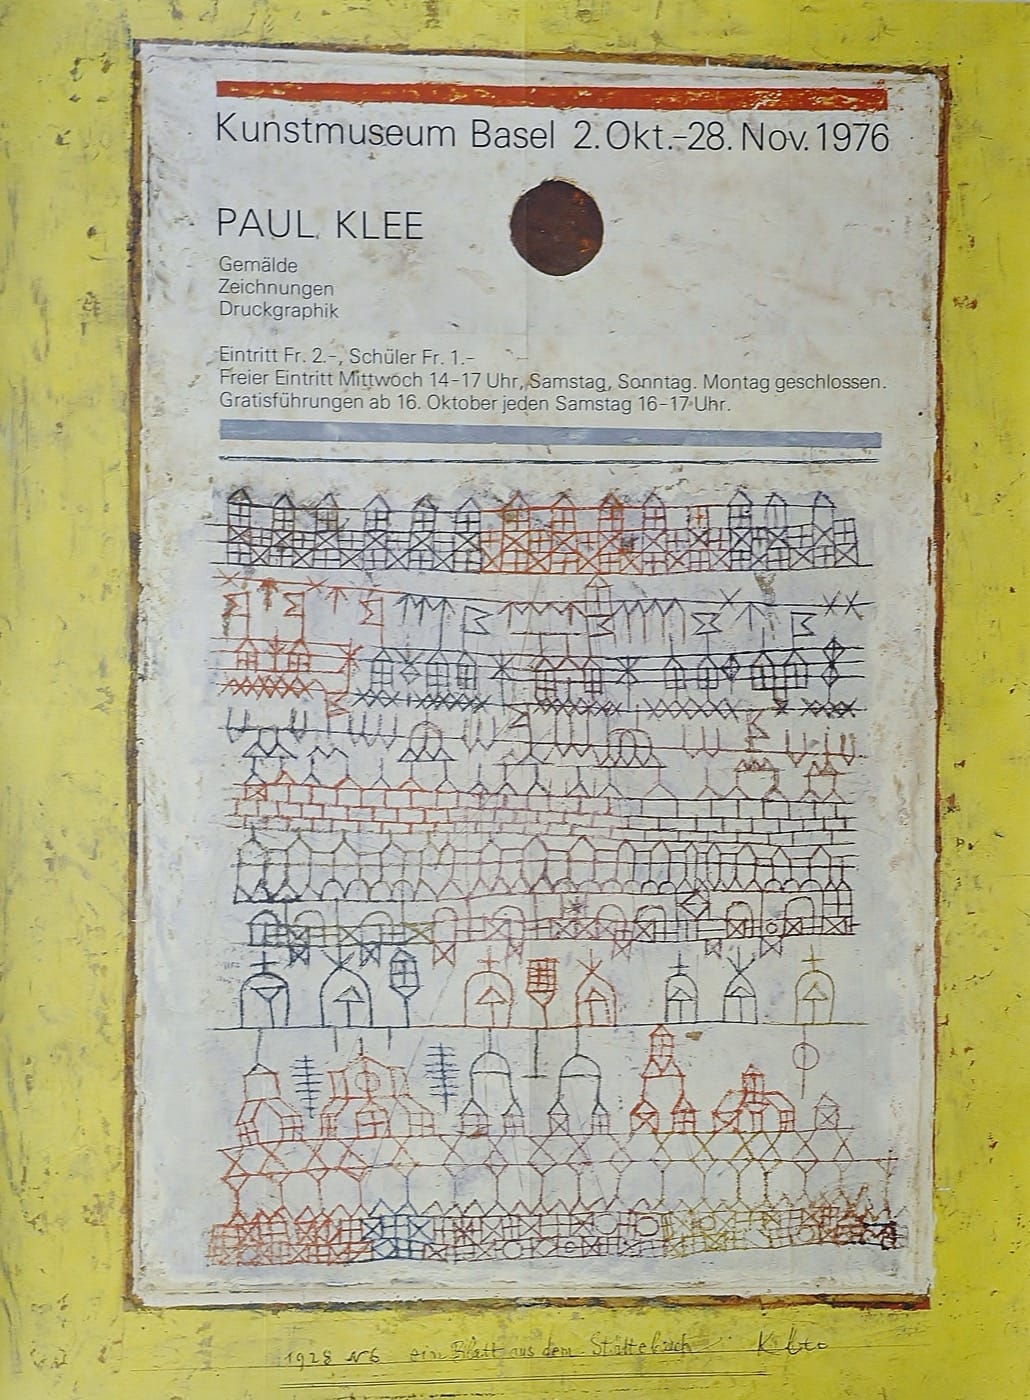 Kunstmuseum Basel 2.Okt.-28. Nov. 1976
PAUL KLEE
Gemälde
Zeichnungen
Druckgraphik
Eintritt Fr. 2.-, Schüler Fr. 1.-
Freier Eintritt Mittwoch 14-17 Uhr, Samstag, Sonntag. Montag geschlossen.
Gratisführungen ab 16. Oktober jeden Samstag 16-17 Uhr.
1928 N6 ein Blatt aus dem Städtebuch